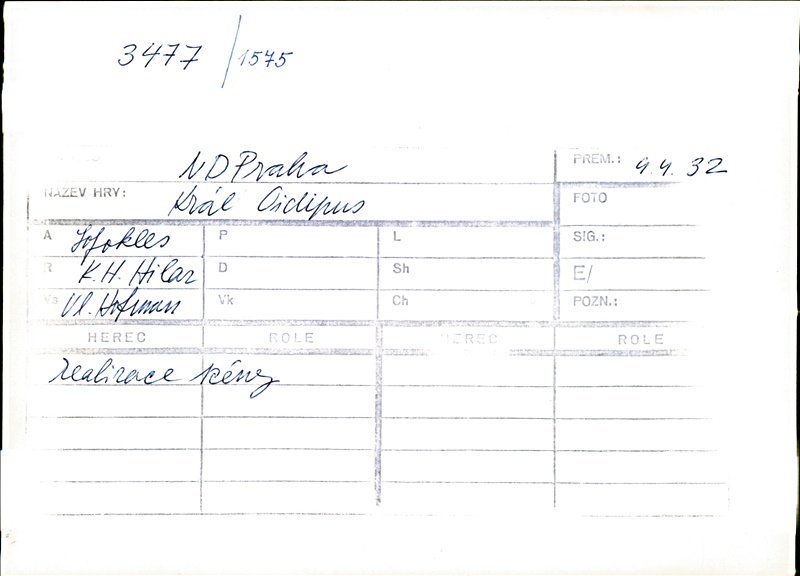 3477 / 1575
ND Praha PREM.: 9.4.32
NÁZEV HRY: Král Oidipus FOTO
A Sofokles P L SIG.:
R K.H. Hilar D Sh E/
Vs Vl. Hofman Vk Ch POZN.:
HEREC ROLE HEREC ROLE
realizace scény